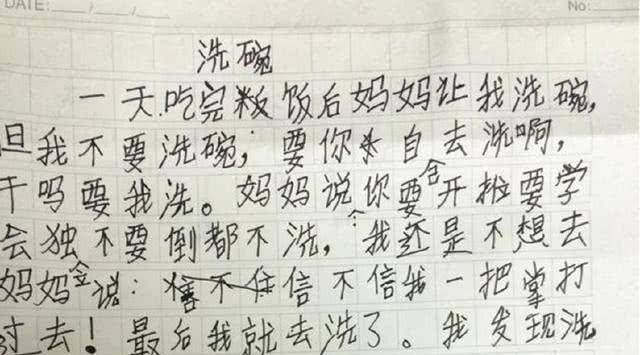 DATE: No:
洗碗
一天.吃完粄饭后妈妈让我洗碗,
但我不要洗碗, 要你自去洗啊,
干吗要我洗。妈妈说你要开推要学
会独不要倒都不洗, 我还是不想去
妈妈说: 信不信我一把掌打
过去! 最后我就去洗了。我发现洗